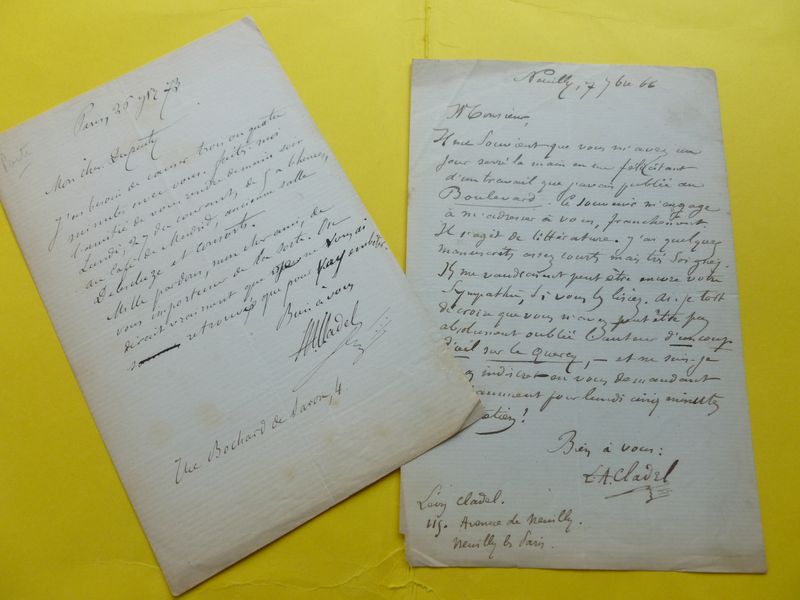 Paris 26 9bre 73
Mon cher Dupenty
J'ai besoin de causer trois ou quatre
minutes avec vous. Faites-moi
l'amitié de vous rendre demain soir
Lundi, 27 du courant, de 5 à 6 heures,
au café de Madrid, ancienne salle
Delescluze et consorts.
Mille pardons, mon cher ami, de
vous importuner de la sorte. On
dirait vraiment que je ne vous ai
retrouvé que pour
Bien à vous
LACladel
Rue Bochard de Saron, 4
Neuilly, 17 7bre 66
Monsieur,
Il me souvient que vous m'avez un
jour serré la main en me félicitant
d'un travail que j'avais publié au
Boulevard. Ce souvenir m'engage
à m'adresser à vous, franchement.
Il s'agit de littérature. J'ai quelques
manuscrits assez courts mais très soignés.
Ils me vaudraient peut être encore votre
Sympathie, si vous les lisiez. Ai-je tort
de croire que vous n'avez peut être pas
absolument oublié l'auteur d'un coup
d'œil sur le Quercy, — et ne suis-je
indiscret en vous demandant
pour lundi cinq minutes
Bien à vous:
LA.Cladel
Léon Cladel.
115. Avenue de Neuilly.
Neuilly les Paris.